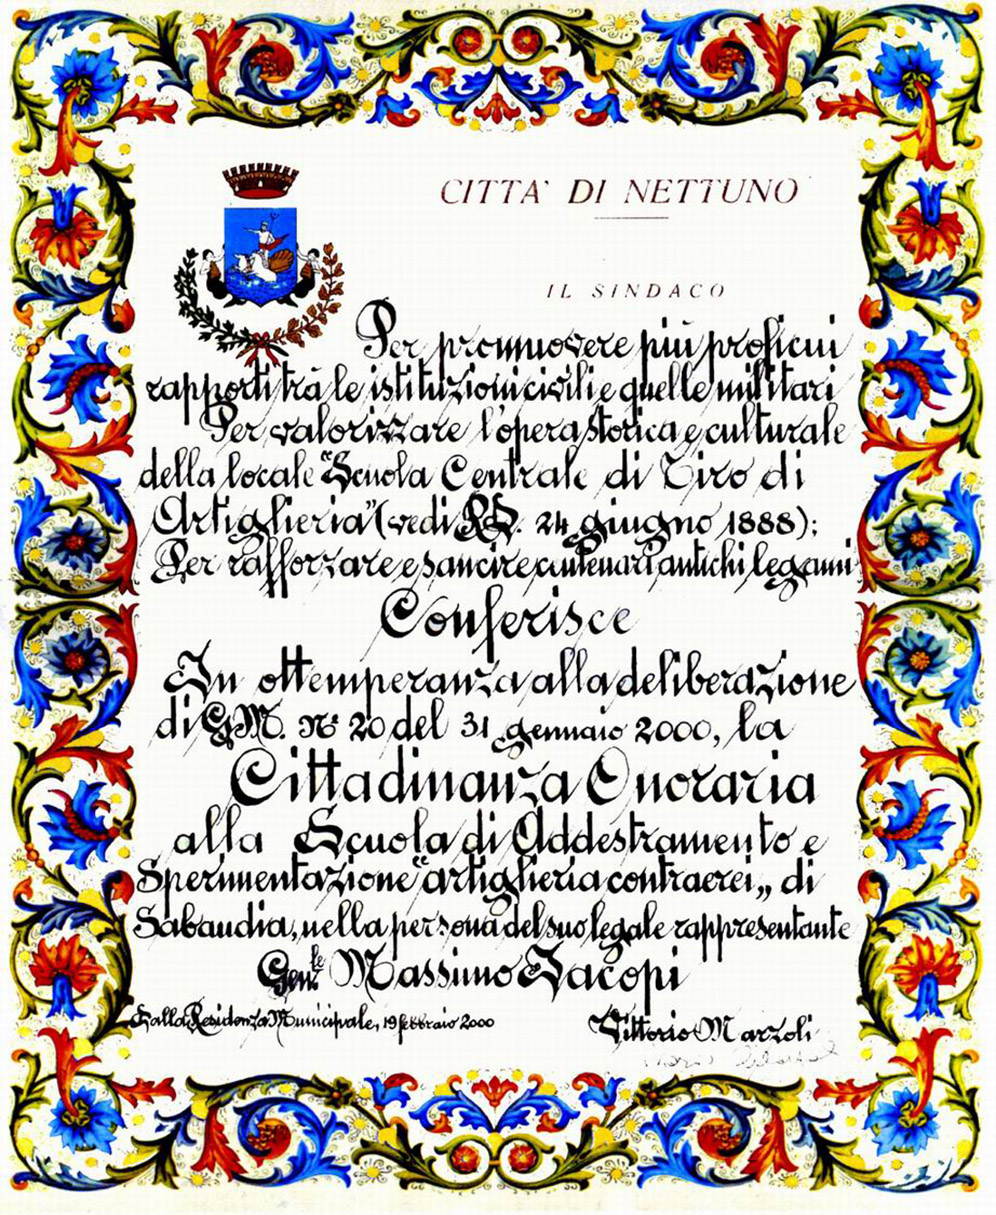 CITTA' DI NETTUNO
IL SINDACO
Per promuovere più proficui
rapporti trà le istituzioni civili e quelle militari
Per valorizzare l'opera storica e culturale
della locale "Scuola Centrale di Tiro di
Artiglieria" (vedi R.D. 24 giugno 1888);
Per rafforzare e sancire centenari antichi legami
Conferisce
In ottemperanza alla deliberazione
di G.M. N° 20 del 31 gennaio 2000, la
Cittadinanza Onoraria
alla Scuola di Addestramento e
Sperimentazione "artiglieria contraerei„ di
Sabaudia, nella persona del suo legale rappresentante
Gen.le Massimo Iacopi
Dalla Residenza Municipale, 19 febbraio 2000
Vittorio Marzoli